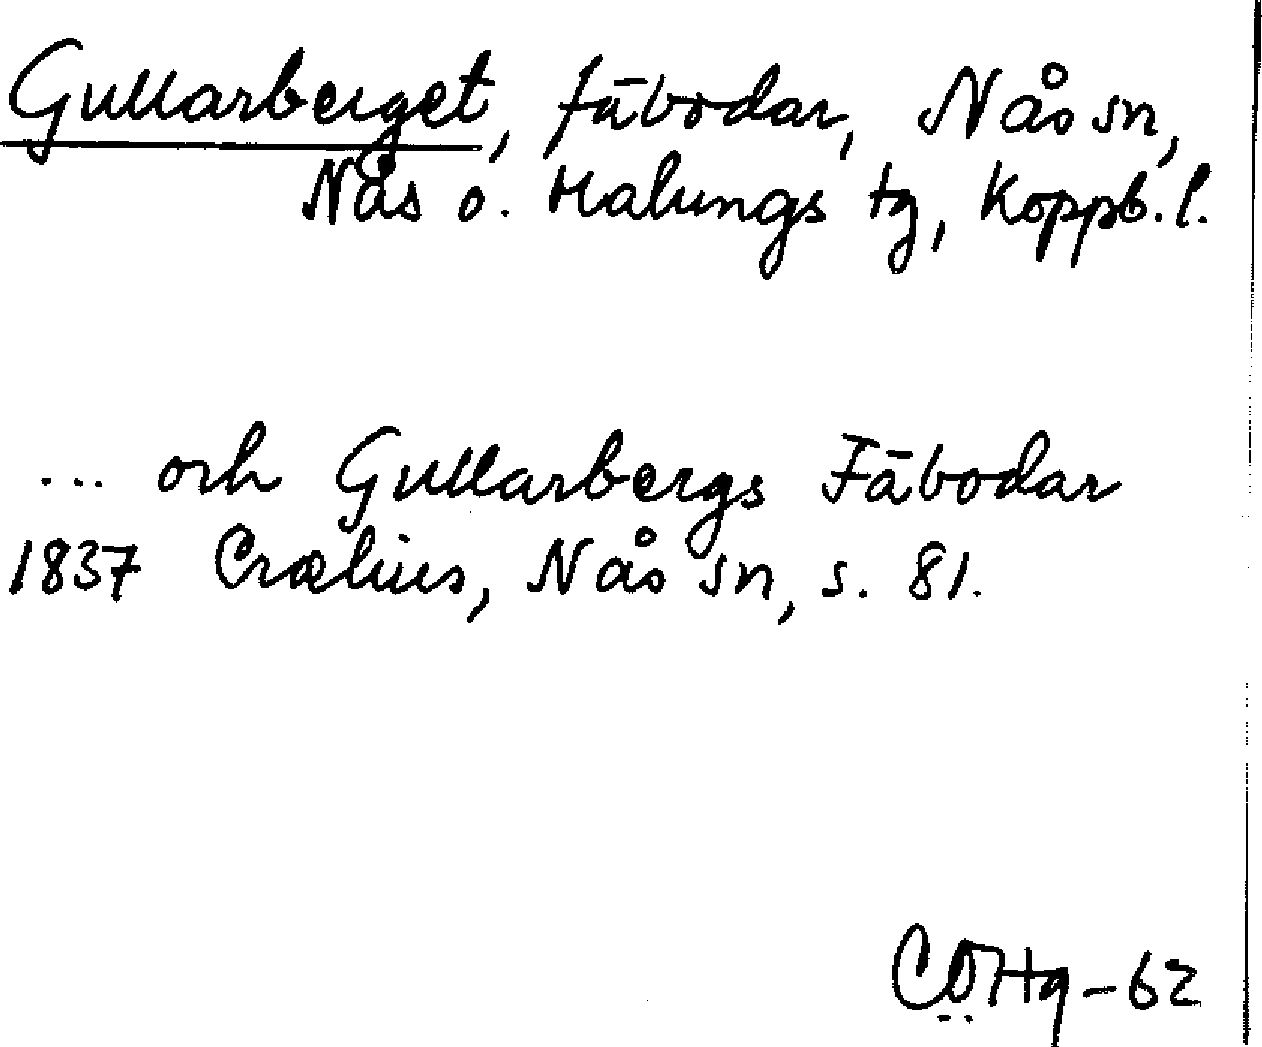 Gullarberget, fäbodar, Nås sn,
Nås o. Malungs tg, Koppb. l.
... och Gullarbergs Fäbodar
1837 Crælius, Nås sn, s. 81.